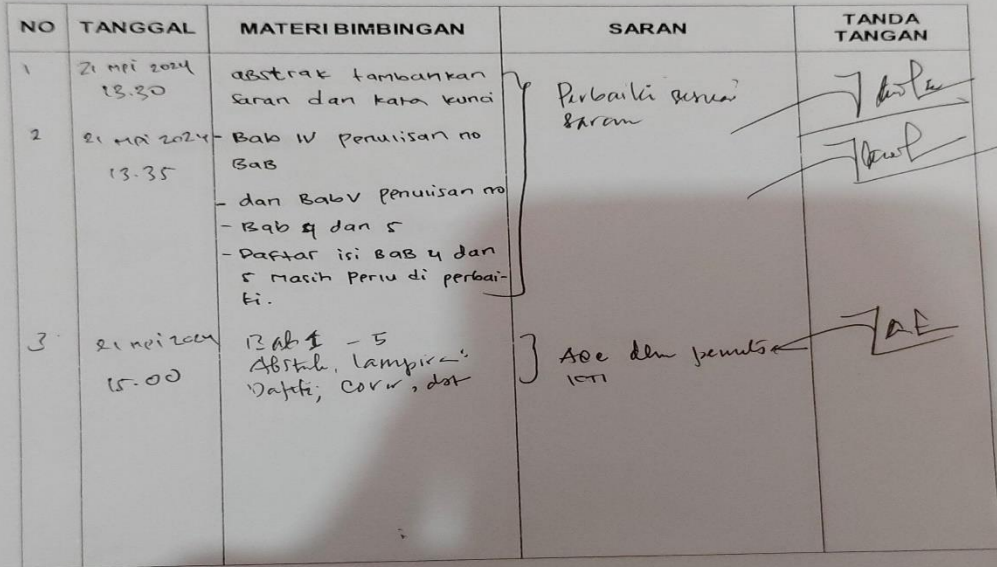 NO TANGGAL MATERI BIMBINGAN SARAN TANDA TANGAN
1 21 Mei 2024 13.30
abstrak tambahkan
saran dan kata kunci
Perbaiki sesuai
saran
2 21 Mei 2024 13.35
- Bab IV Penulisan no
BAB
- dan Bab V Penulisan no
- Bab 4 dan 5
- Daftar isi BAB 4 dan
5 Masih Perlu di perbai-
ki.
3 21 Mei 2024 15.00
Bab 1 - 5
Abstrak, lampiran
cover,
Acc
KTI